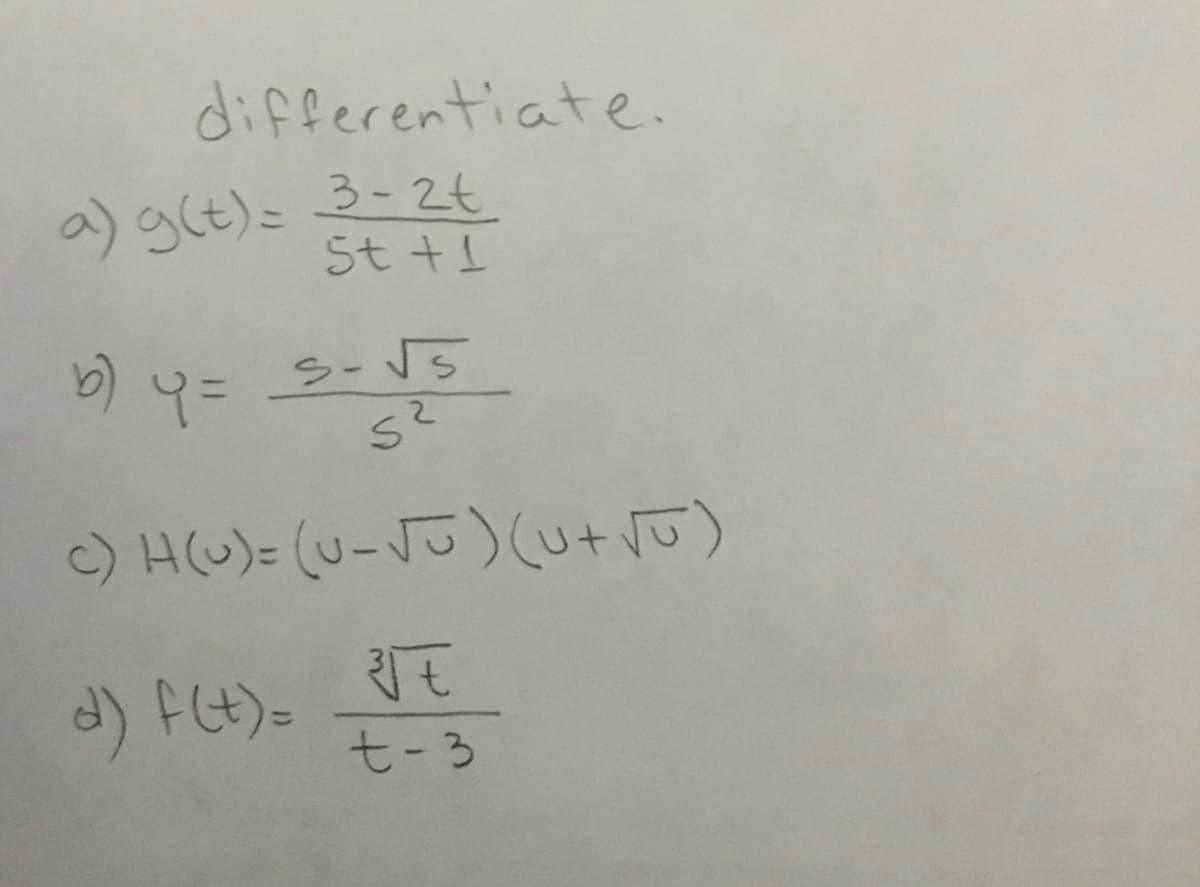 differentiate.
a) g(t) = (3 - 2t)/(5t + 1)
b) y = (s - √s)/s²
c) H(u) = (u - √u)(u + √u)
d) f(t) = ∛t/(t - 3)